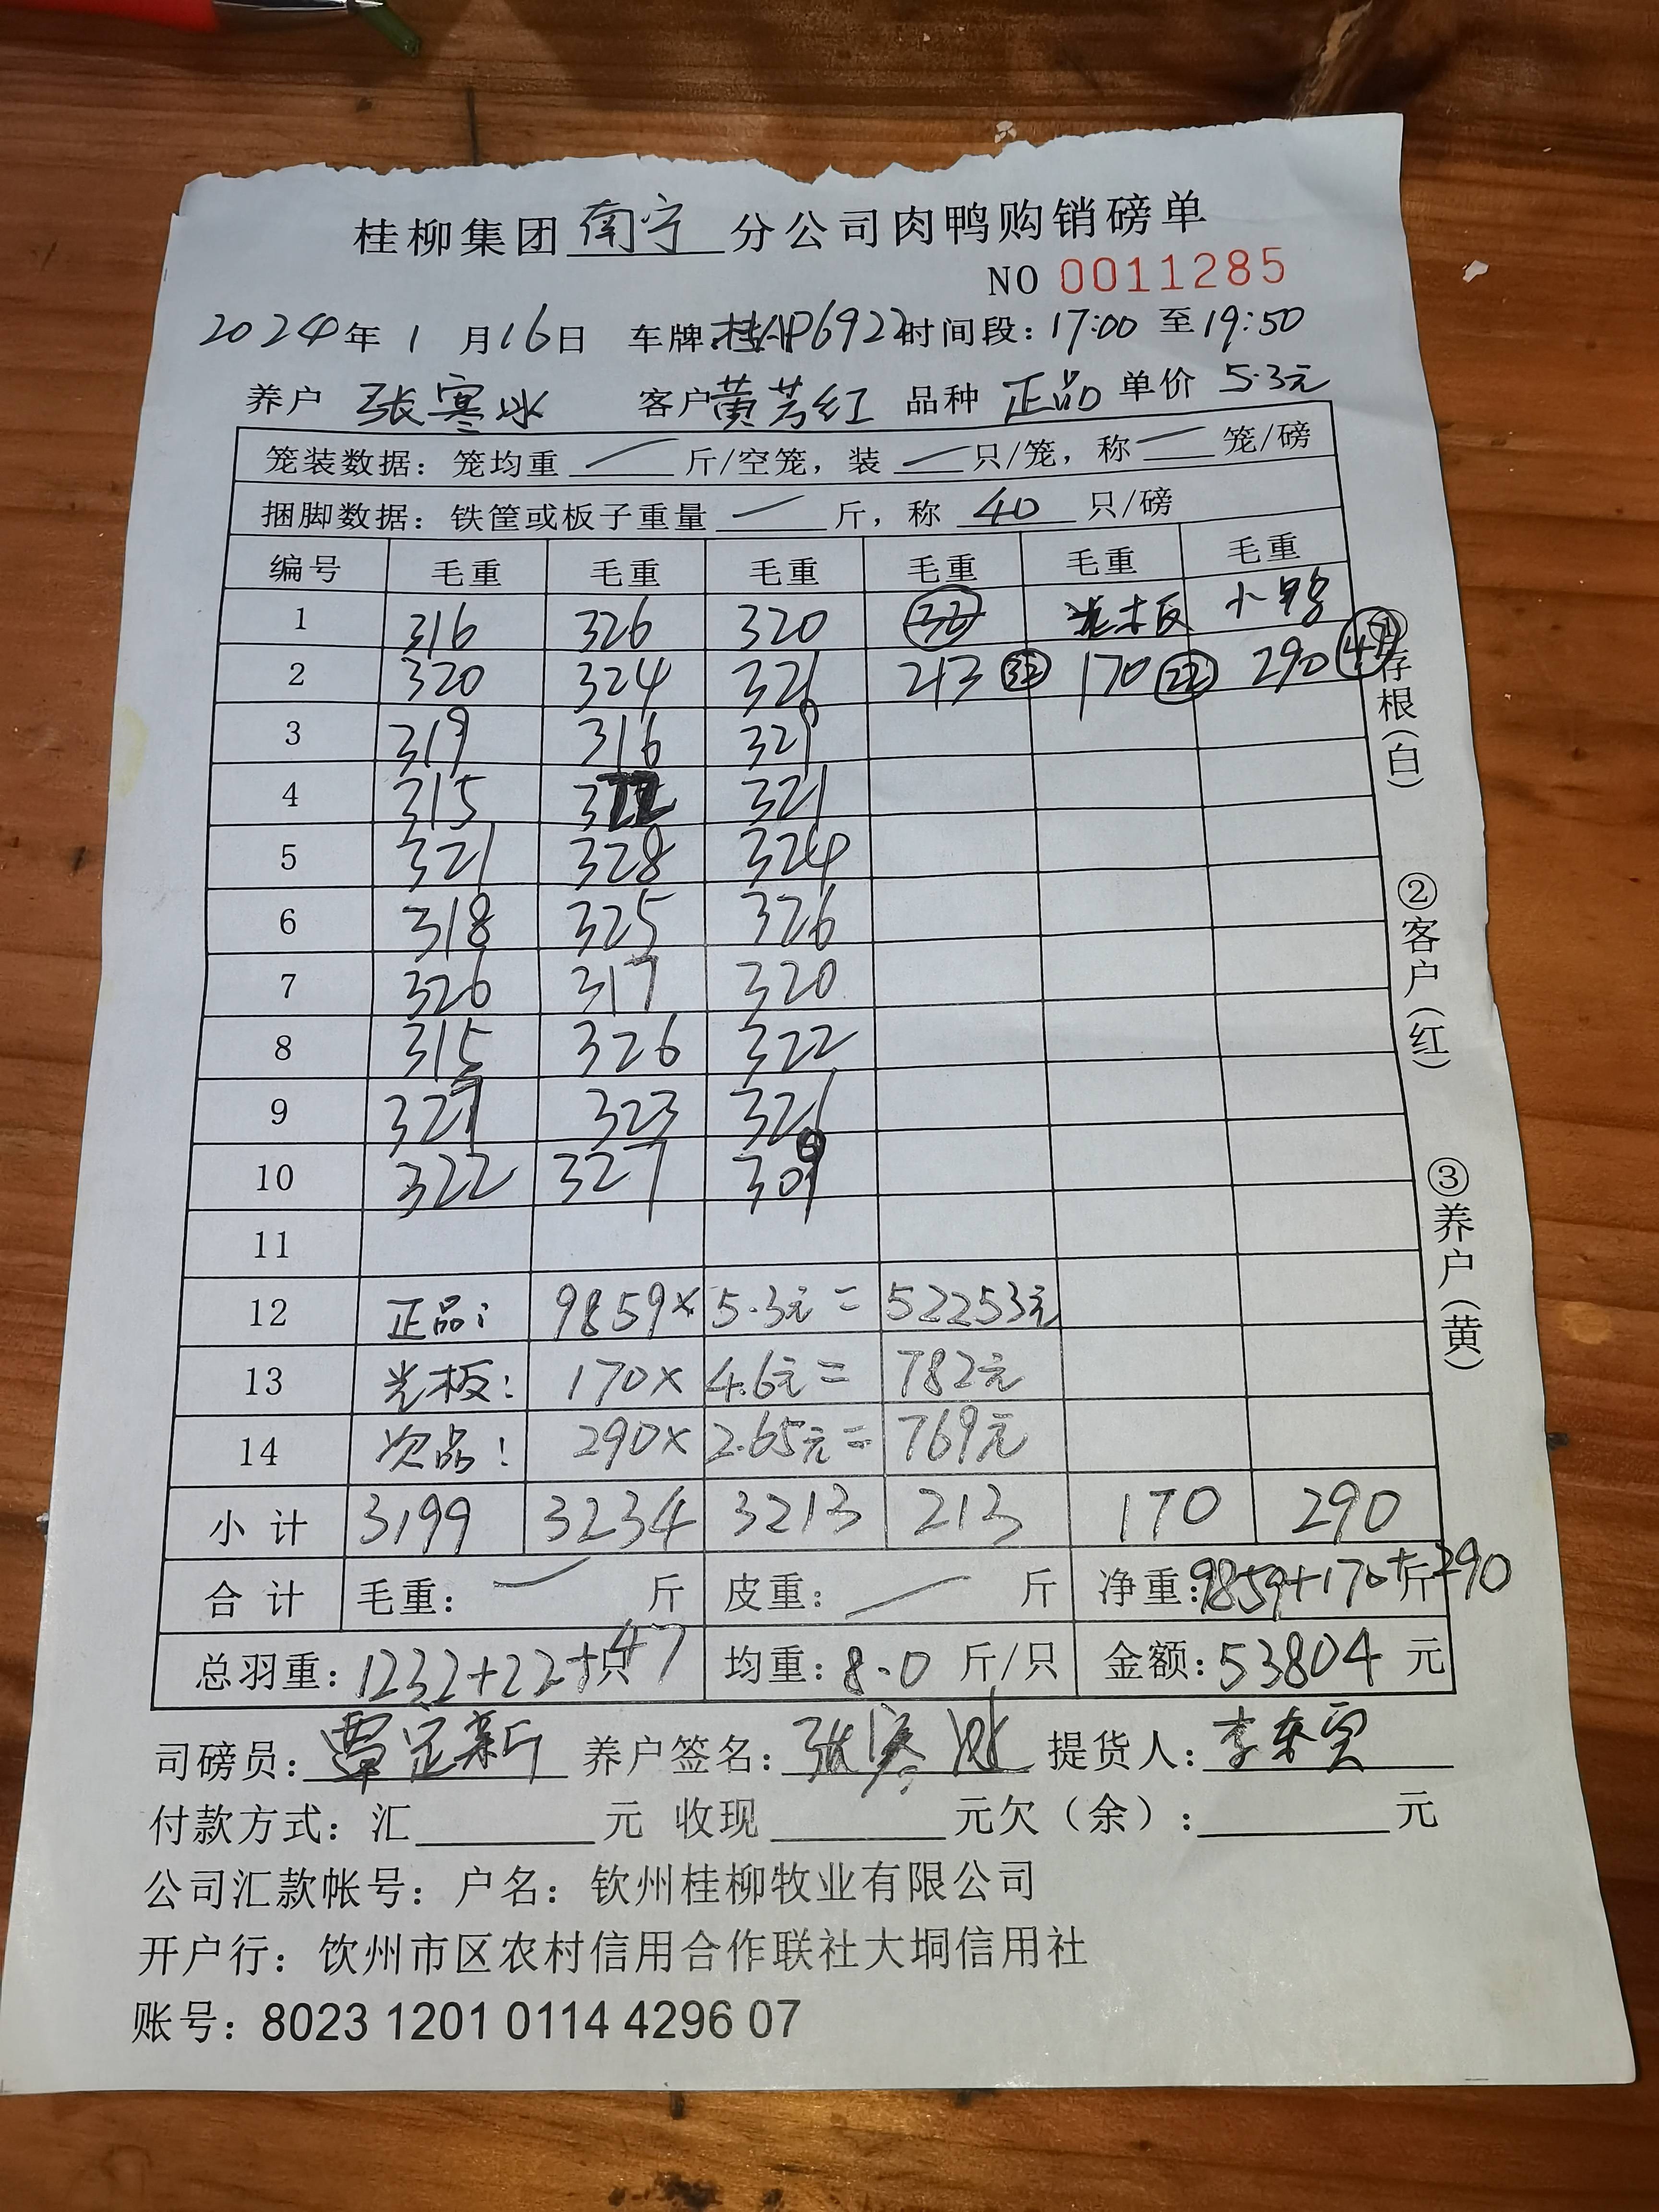 桂柳集团 南宁 分公司肉鸭购销磅单
NO 0011285
2024年 1 月16日 车牌:桂AP6922 时间段:17:00 至19:50
养户 张寒冰 客户 黄芳红 品种 正品 单价 5.3元
笼装数据:笼均重 — 斤/空笼,装 — 只/笼,称 — 笼/磅
捆脚数据:铁筐或板子重量 — 斤,称 40 只/磅
编号 毛重 毛重 毛重 毛重 毛重 毛重
1 316 326 320 光板 小鸭
2 320 324 321 213 32 170 22 290 47
3 319 316 329
4 315 322 321
5 321 328 324
6 318 325 326
7 326 317 320
8 315 326 322
9 327 323 321
10 322 327 309
11
12 正品: 9859× 5.3元= 52253元
13 光板: 170× 4.6元= 782元
14 次品: 290× 2.65元= 769元
小计 3199 3234 3213 213 170 290
合计 毛重: — 斤 皮重: — 斤 净重:9859+170+290 斤
总羽重:1232+22+47 只 均重:8.0 斤/只 金额:53804 元
司磅员: 覃定新 养户签名: 张寒冰 提货人:
付款方式:汇 元 收现 元欠(余): 元
公司汇款帐号:户名:钦州桂柳牧业有限公司
开户行:饮州市区农村信用合作联社大垌信用社
账号:8023 1201 0114 4296 07
①存根(白)
②客户(红)
③养户(黄)